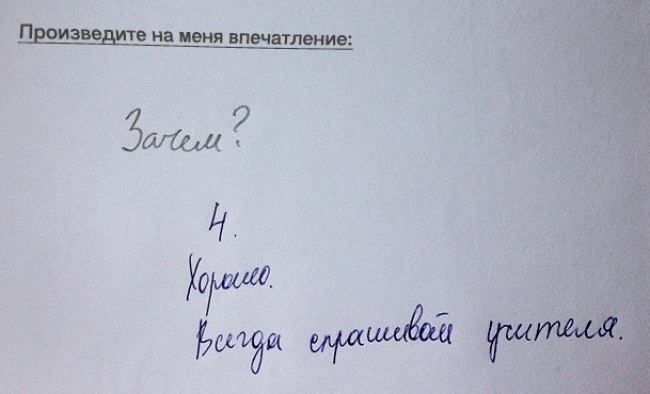 Произведите на меня впечатление:
Зачем?
4.
Хорошо.
Всегда спрашивай учителя.